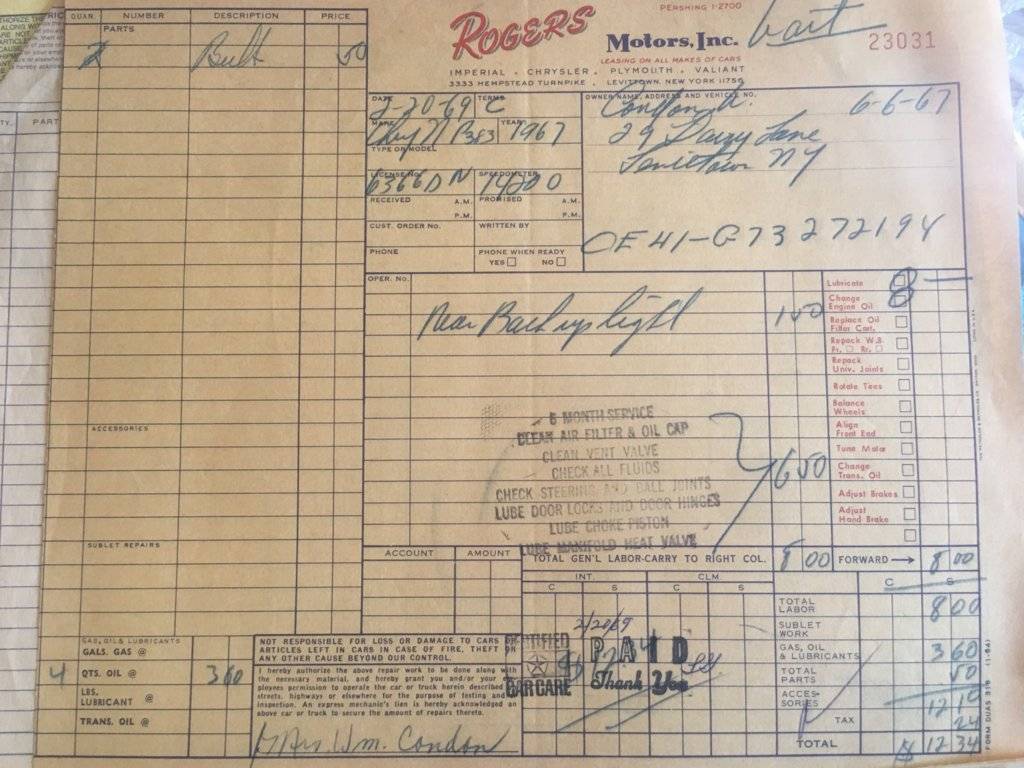 QUAN. NUMBER DESCRIPTION PRICE
PARTS
Bulb 50
ACCESSORIES
SUBLET REPAIRS
GAS, OIL & LUBRICANTS
GALS. GAS @
4 QTS. OIL @ 3 60
LBS. LUBRICANT @
TRANS. OIL @
PERSHING 1-2700
ROGERS
Motors, Inc.
23031
LEASING ON ALL MAKES OF CARS
IMPERIAL . CHRYSLER . PLYMOUTH . VALIANT
3333 HEMPSTEAD TURNPIKE . LEVITTOWN, NEW YORK 11756
DATE 2-20-69 TERMS C
MAKE Chry N B33 YEAR 1967
TYPE OR MODEL
LICENSE No. 6366DN SPEEDOMETER 14200
RECEIVED A.M. P.M. PROMISED A.M. P.M.
CUST. ORDER No. WRITTEN BY
PHONE PHONE WHEN READY
YES NO
OWNER NAME, ADDRESS AND VEHICLE NO.
Condon W. 6-6-67
29 Lane
Levittown NY
CE41-G73 272194
OPER. No.
Rear Back up light 1 50
6 MONTH SERVICE
CLEAN AIR FILTER & OIL CAP
CLEAN VENT VALVE
CHECK ALL FLUIDS
CHECK STEERING AND BALL JOINTS
LUBE DOOR LOCKS AND DOOR HINGES
LUBE CHOKE PISTON
LUBE MANIFOLD HEAT VALVE
6 50
Lubricate
Change Engine Oil
Replace Oil Filter Cart.
Repack W.B. Fr. Rr.
Repack Univ. Joints
Rotate Tires
Balance Wheels
Align Front End
Tune Motor
Change Trans. Oil
Adjust Brakes
Adjust Hand Brake
ACCOUNT AMOUNT
TOTAL GEN'L LABOR-CARRY TO RIGHT COL. 8 00 FORWARD → 8 00
INT. CLM.
C S C S
C S
TOTAL LABOR 8 00
SUBLET WORK
GAS, OIL & LUBRICANTS 3 60
TOTAL PARTS 50
ACCESSORIES 12 10
TAX 24
TOTAL $ 12 34
NOT RESPONSIBLE FOR LOSS OR DAMAGE TO CARS OR
ARTICLES LEFT IN CARS IN CASE OF FIRE, THEFT OR
ANY OTHER CAUSE BEYOND OUR CONTROL.
I hereby authorize the above repair work to be done along with
the necessary material, and hereby grant you and/or your em-
ployees permission to operate the car or truck herein described on
streets, highways or elsewhere for the purpose of testing and/or
inspection. An express mechanic's lien is hereby acknowledged on
above car or truck to secure the amount of repairs thereto.
Mrs. Wm. Condon
2/20/69
CERTIFIED CAR CARE
PAID
Thank You